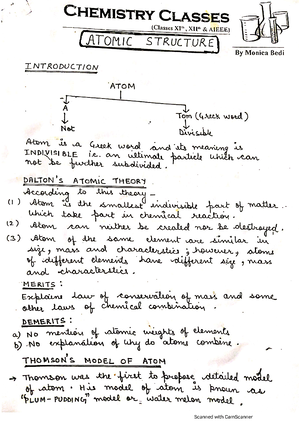 CHEMISTRY CLASSES
(Classes XIth, XIIth & AIEEE)
ATOMIC STRUCTURE
By Monica Bedi
INTRODUCTION
ATOM
A
Tom (Greek word)
Not
Divisible
Atom is a Greek word and its meaning is
INDIVISIBLE i.e. an ultimate particle which can
not be further subdivided.
DALTON'S ATOMIC THEORY
According to this theory -
(1) Atom is the smallest indivisible part of matter
which take part in chemical reaction.
(2) Atom can neither be created nor be destroyed.
(3) Atom of the same element are similar in
size, mass and characteristics; however, atoms
of different elements have different size, mass
and characteristics.
MERITS:
Explains law of conservation of mass and some
other laws of chemical combination.
DEMERITS:
a) No mention of atomic weights of elements
b) No explanation of why do atoms combine.
THOMSON'S MODEL OF ATOM
→ Thomson was the first to propose detailed model
of atom. His model of atom is known as
"PLUM-PUDDING" model or water melon model.
Scanned with CamScanner